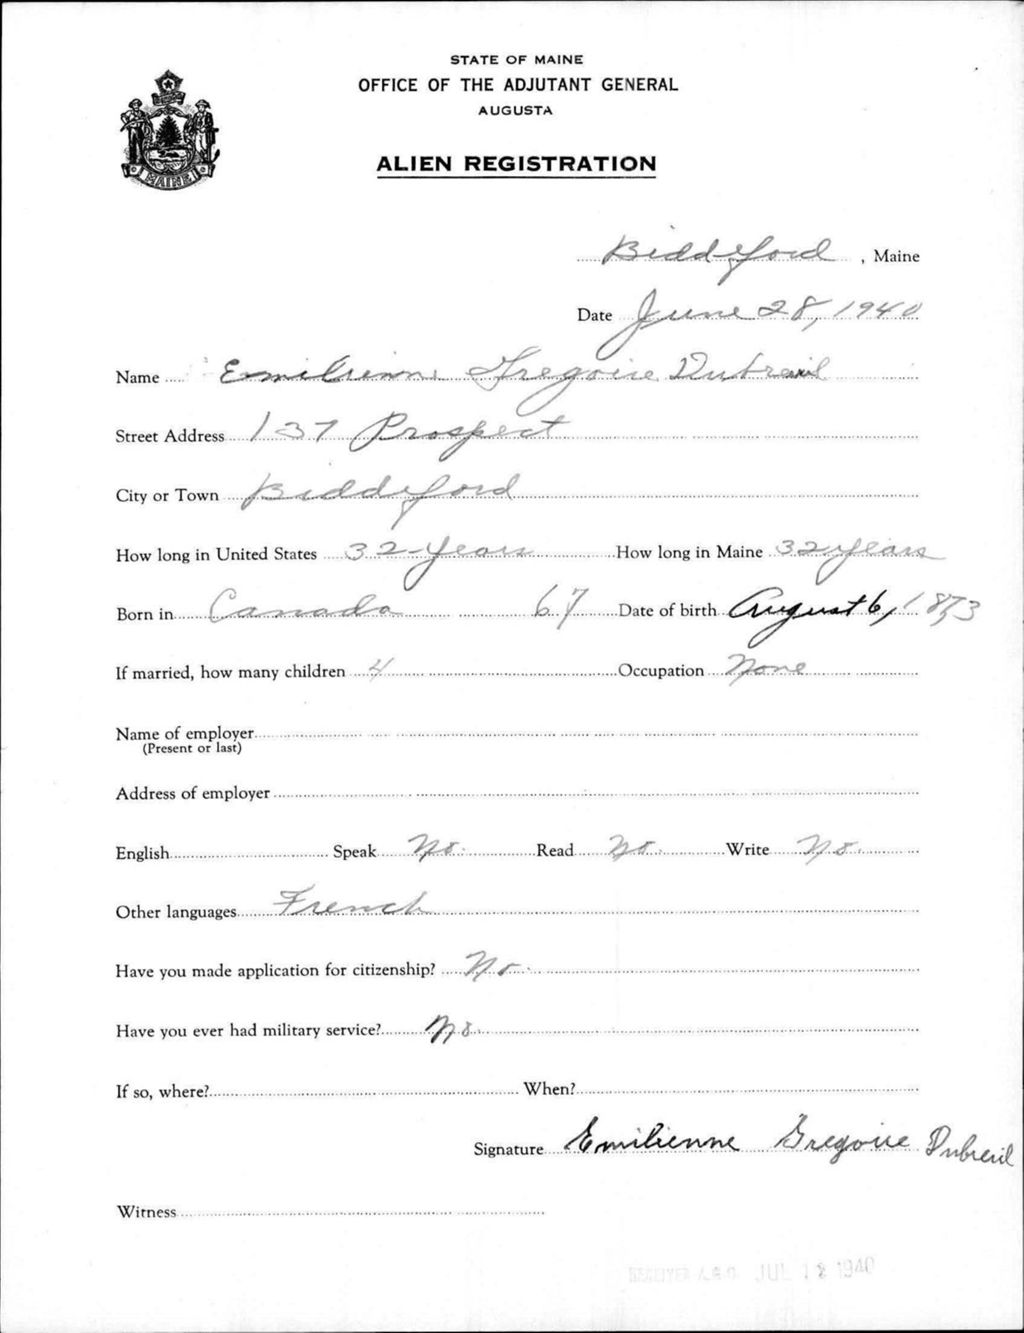 STATE OF MAINE
OFFICE OF THE ADJUTANT GENERAL
AUGUSTA
ALIEN REGISTRATION
MAINE
Biddeford, Maine
Date June 28, 1940
Name Emilienne Gregoire Dubreuil
Street Address 137 Prospect
City or Town Biddeford
How long in United States 32 years How long in Maine 32 years
Born in Canada 67 Date of birth August 6, 1873
If married, how many children 4 Occupation None
Name of employer
(Present or last)
Address of employer
English Speak No. Read No. Write No.
Other languages French
Have you made application for citizenship? No.
Have you ever had military service? No.
If so, where? When?
Signature Emilienne Gregoire Dubreuil
Witness
RECEIVED A.G.O. JUL 12 1940